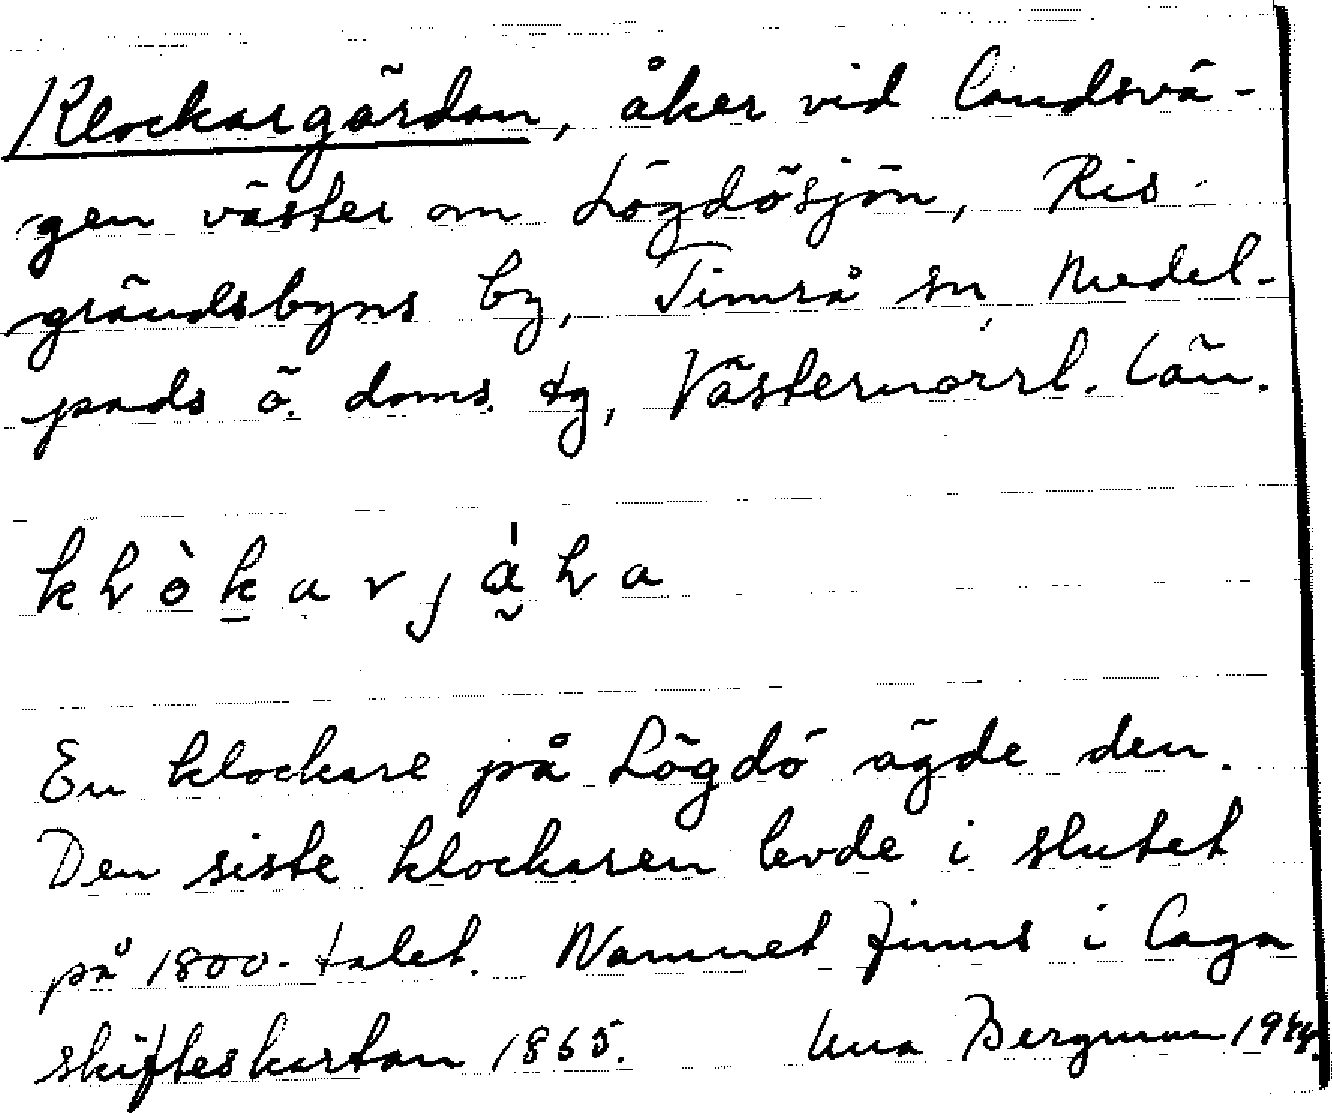 Klockargärdan, åker vid landsvä-
gen väster om Lögdösjön, Ris-
grändsbyns by, Timrå sn, Medel-
pads ö. doms. tg, Västernorrl. län.
En klockare på Lögdö ägde den.
Den siste klockaren levde i slutet
på 1800-talet. Namnet finns i Laga
skifteskartan 1865. Bergman